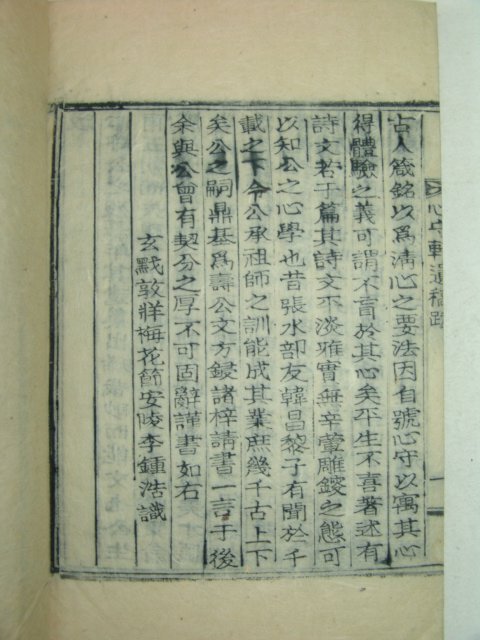 古人箴銘以爲淸心之要法因自號心守以寓其心
得體驗之義可謂不盲於其心矣平生不喜著述有
詩文若干篇其詩文不淡雅實無辛葷雕鎪之態可
以知公之心學也昔張水部友韓昌黎子有聞於千
載之下今公承祖師之訓能成其業庶幾千古上下
矣公之嗣鼎基爲壽公文方鋟諸梓請書一言于後
余與公曾有契分之厚不可固辭謹書如右
玄黓敦牂梅花節安陵李鍾浩識
心守軒遺稿跋